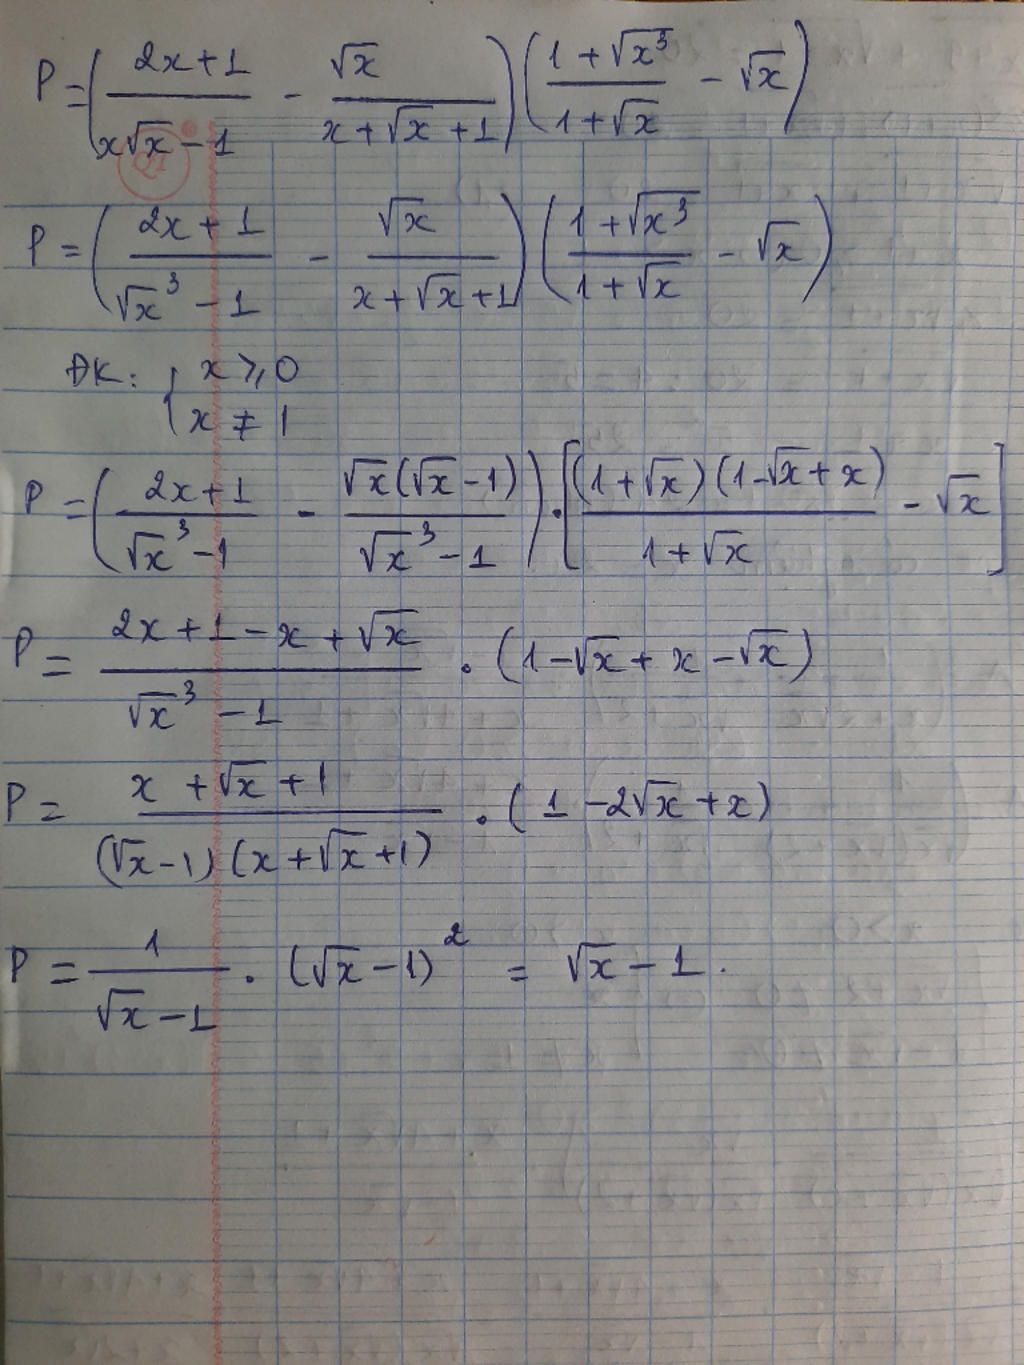 P = ( (2x+1)/(x√x - 1) - √x/(x+√x+1) ) ( (1+√x³)/(1+√x) - √x )
P = ( (2x+1)/(√x³ - 1) - √x/(x+√x+1) ) ( (1+√x³)/(1+√x) - √x )
ĐK: { x ≥ 0
x ≠ 1
P = ( (2x+1)/(√x³ - 1) - √x(√x - 1)/(√x³ - 1) ) . [ (1+√x)(1-√x+x)/(1+√x) - √x ]
P = (2x+1-x+√x)/(√x³ - 1) . (1-√x+x-√x)
P = (x+√x+1)/((√x-1)(x+√x+1)) . (1-2√x+x)
P = 1/(√x-1) . (√x-1)² = √x-1.